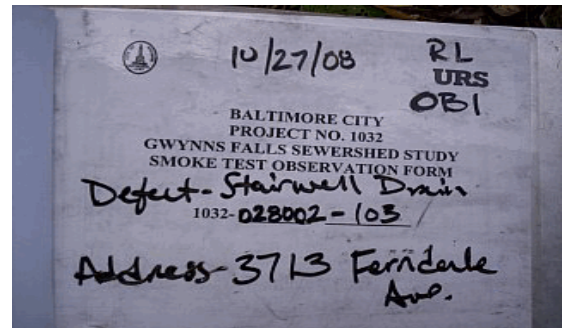 10/27/08 RL
URS
OB1
BALTIMORE CITY
PROJECT NO. 1032
GWYNNS FALLS SEWERSHED STUDY
SMOKE TEST OBSERVATION FORM
Defect- Stairwell Drain
1032-028002-103
Address-3713 Ferndale
Ave.